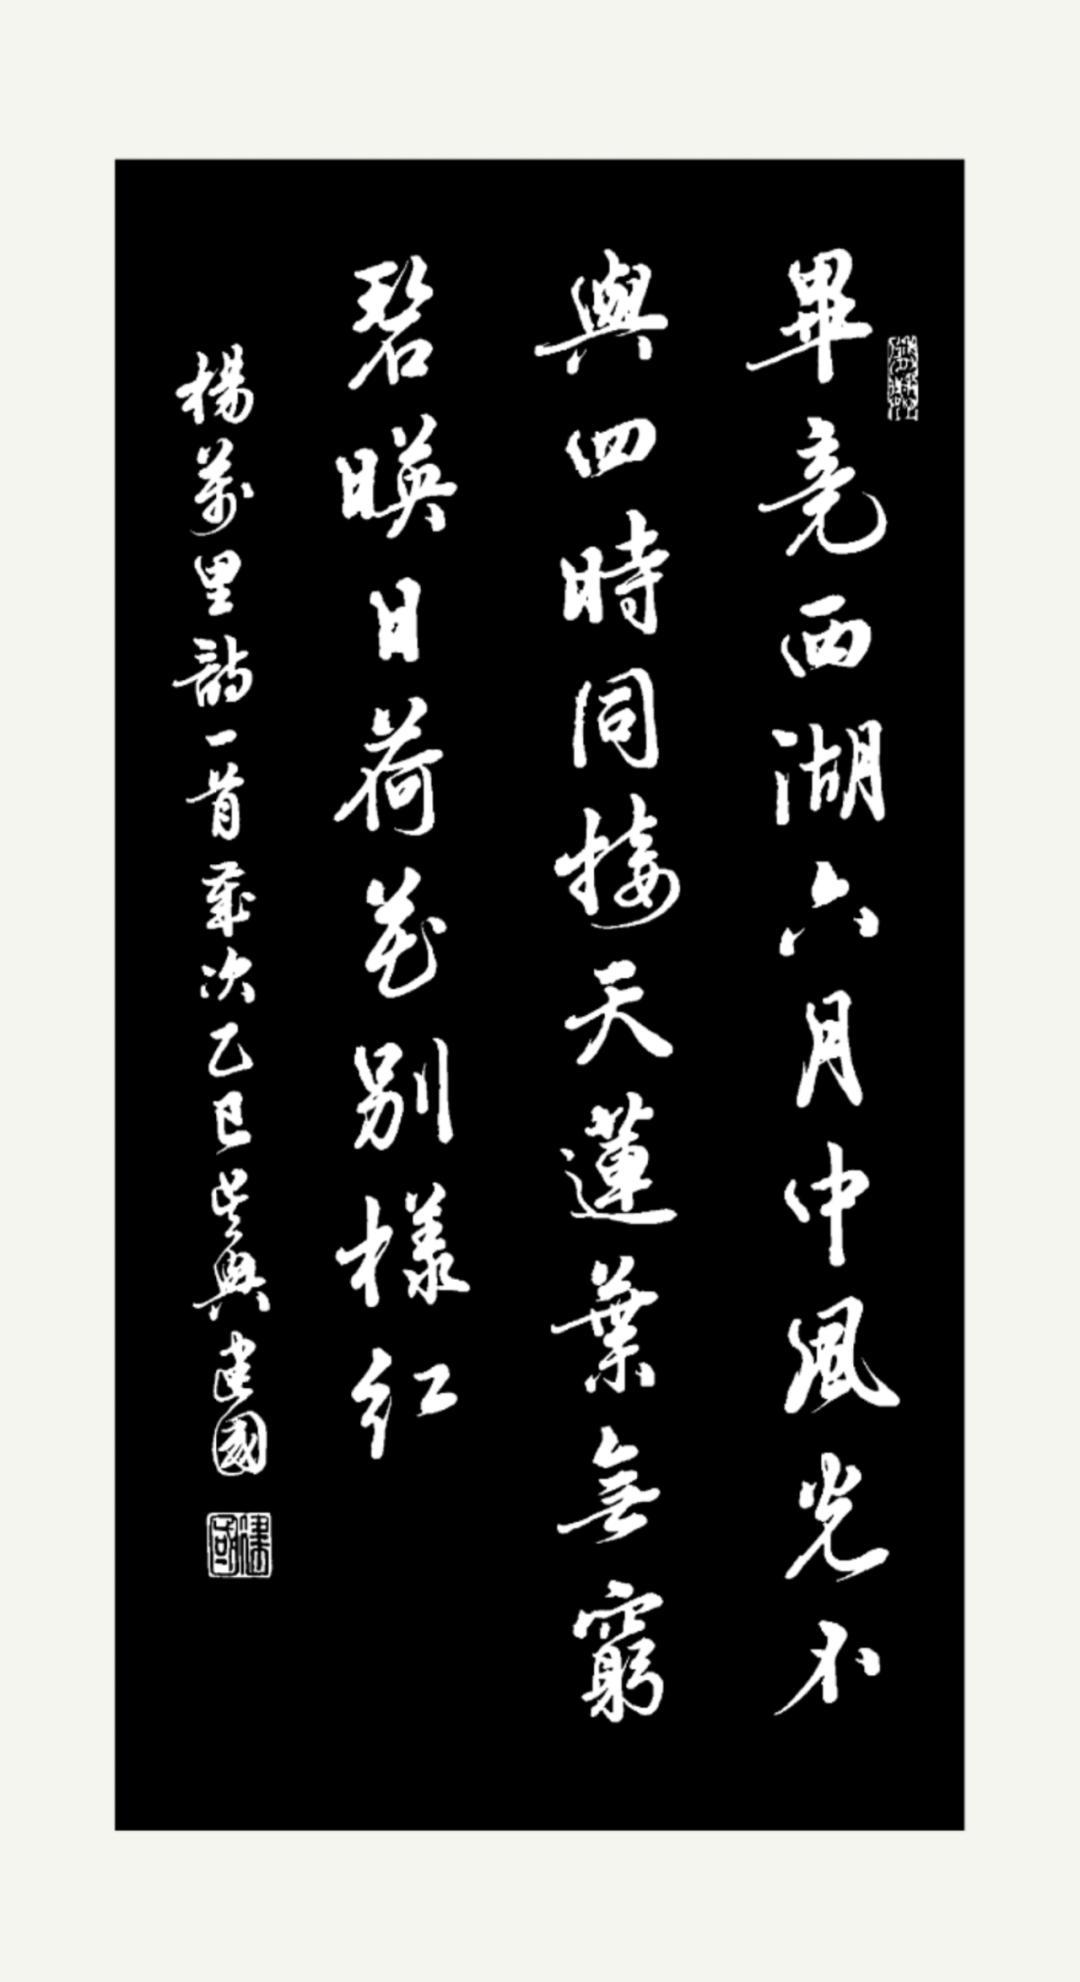 畢竟西湖六月中風光不
與四時同接天蓮葉無窮
碧暎日荷花別樣紅
楊萬里詩一首歲次乙巳吳興建國
建國